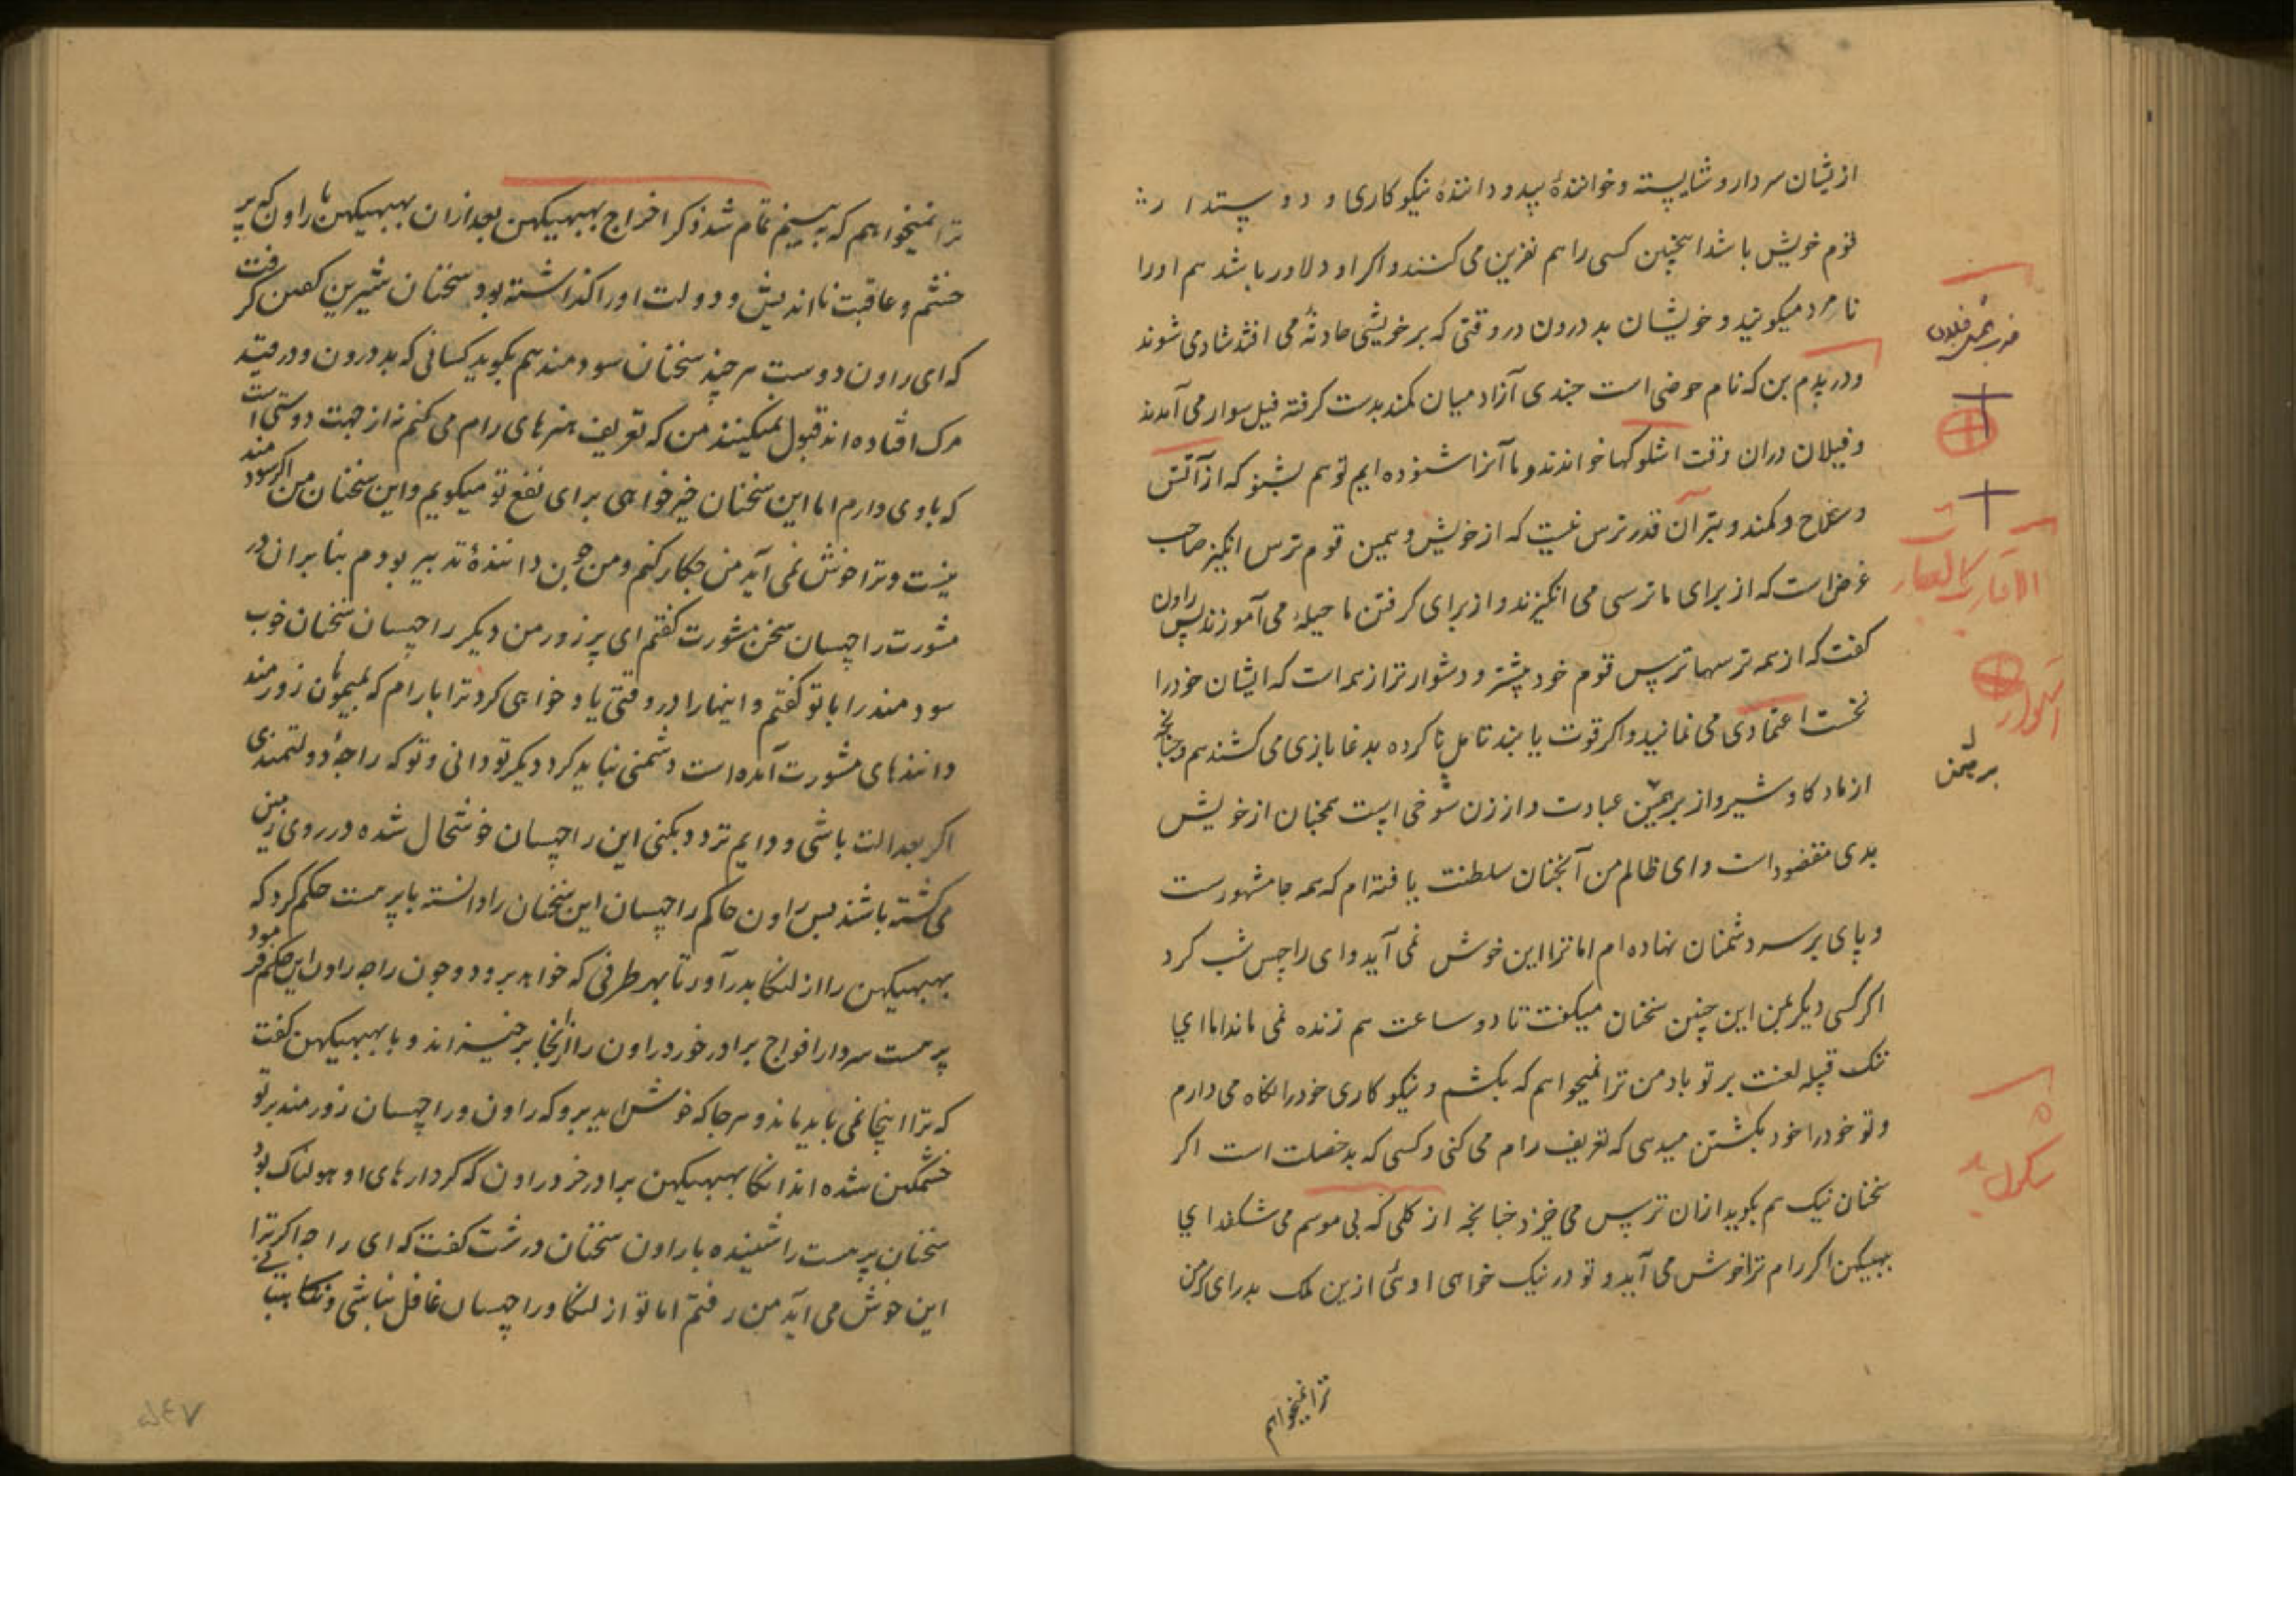 ازیشان سردار و شایسته و خوانندهٔ بید و دانندهٔ نیکوکاری و دوستدار
قوم خویش باشد اینچنین کسی را هم نفرین می کنند و اکر او دلاور باشد هم او را
نامرد میکویند و خویشان بد درون در وقتی که بر خویشی حادثهٔ می افتد شادی شوند
و در پدم بن که نام حوضی است چندی آزاد میان کمند بدست کرفته فیل سوار می آمدند
و فیلان دران وقت اشلوکها خواندند و ما آنرا شنوده ایم تو هم بشنو که از آتش
و سلاح و کمند و بتر آن قدر ترس نیست که از خویش و همین قوم ترس انکیز صاحب
غرض است که از برای ما ترسی می انکیزند و از برای کرفتن ما حیلهٔ می آموزند پس راون
کفت که از همه ترسها ترس قوم خود بیشتر و دشوارتر از همه است که ایشان خود را
نخست اعتمادی می نمانید و اکر قوت یابند تامل نا کرده بدغا بازی می کشند هم و چنانچه
از ماده کاو شیر و از برهمن عبادت و از زن شوخی است همچنان از خویش
بدی مقصود است و ای ظالم من آنچنان سلطنت یافته ام که همه جا مشهورست
و پای بر سر دشمنان نهاده ام اما ترا این خوش نمی آید و ای راچس شب کرد
اکر کسی دیکر بمن این چنین سخنان میکفت تا دو ساعت هم زنده نمی ماند اما ای
ننک قبیله لعنت بر تو باد من ترا نمیخواهم که بکشم و نیکو کاری خود را نکاه می دارم
و تو خود را خود بکشتن میدهی که تعریف رام می کنی و کسی که بد خصلت است اکر
سخنان نیک هم بکوید ازان ترس می خیزد چنانچه از کلی که بی موسم می شکفد ای
ببیکن اکر رام ترا خوش می آید و تو در نیک خواهی اوئی ازین ملک بدر ای که من
ترا نمیخواهم
برهمن
الاقارب کالعقارب
ترا نمیخواهم که ببینم تمام شد ذکر اخراج ببهیکهن بعد ازان ببهیکهن با راون که پر
خشم و عاقبت نااندیش و دولت او را کذاشته بود سخنان شیرین کفتن کرفت
که ای راون دوست هر چند سخنان سودمند هم بکوید کسانی که بد درون و در قید
مرک افتاده اند قبول نمیکنند من که تعریف هنرهای رام می کنم نه از جهت دوستی است
که با وی دارم اما این سخنان خیر خواهی برای نفع تو میکویم و این سخنان من اکر سودمند
نیست و ترا خوش نمی آید من چکار کنم و من چون دانندهٔ تدبیر بودم بنابران در
مشورت راچسان سخن مشورت کفتم ای پر زور من دیکر راچسان سخنان خوب
سودمند را با تو کفتم و اینها را در وقتی یاد خواهی کرد ترا با رام که بمیمونان زورمند
دانندهای مشورت آمده است دشمنی نباید کرد دیکر تو دانی و تو که راجهٔ دولتمندی
اکر بعدالت باشی و دایم تردد بکنی این راچسان خوشحال شده در روی زمین
می کشته باشند پس راون حاکم راچسان این سخنان را دانسته با پرهست حکم کرد که
ببهیکهن را از لنکا بدر آور تا بهر طرفی که خواهد برود و چون راجه راون این حکم فرمود
پرهست سردار افواج برادر خورد راون را از انجا بر خیزاند و با ببهیکهن کفت
که ترا اینجا نمی باید ماند و هر جا که خوش اید برو که راون و راچسان زورمند بر تو
خشمکین شده اند انکا ببهیکهن برادر خرد راون که کردارهای او هولناک بود
سخنان پرهست را شنیده با راون سخنان درشت کفت که ای راجه اکر ترا
این خوش می اید من رفتم اما تو از لنکا و راچسان غافل نباشی و نکاهبانی
۵۴۷